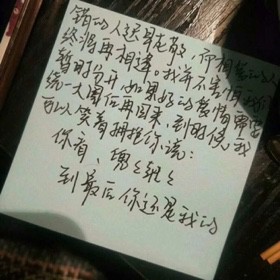 错的人还是走散，而相爱的人
终将再相逢。我并不害怕
暂时分开，如果好的爱情需要
绕一大圈后再回来，到时候，我
可以笑着拥抱你说：
你看，
到最后你还是我的